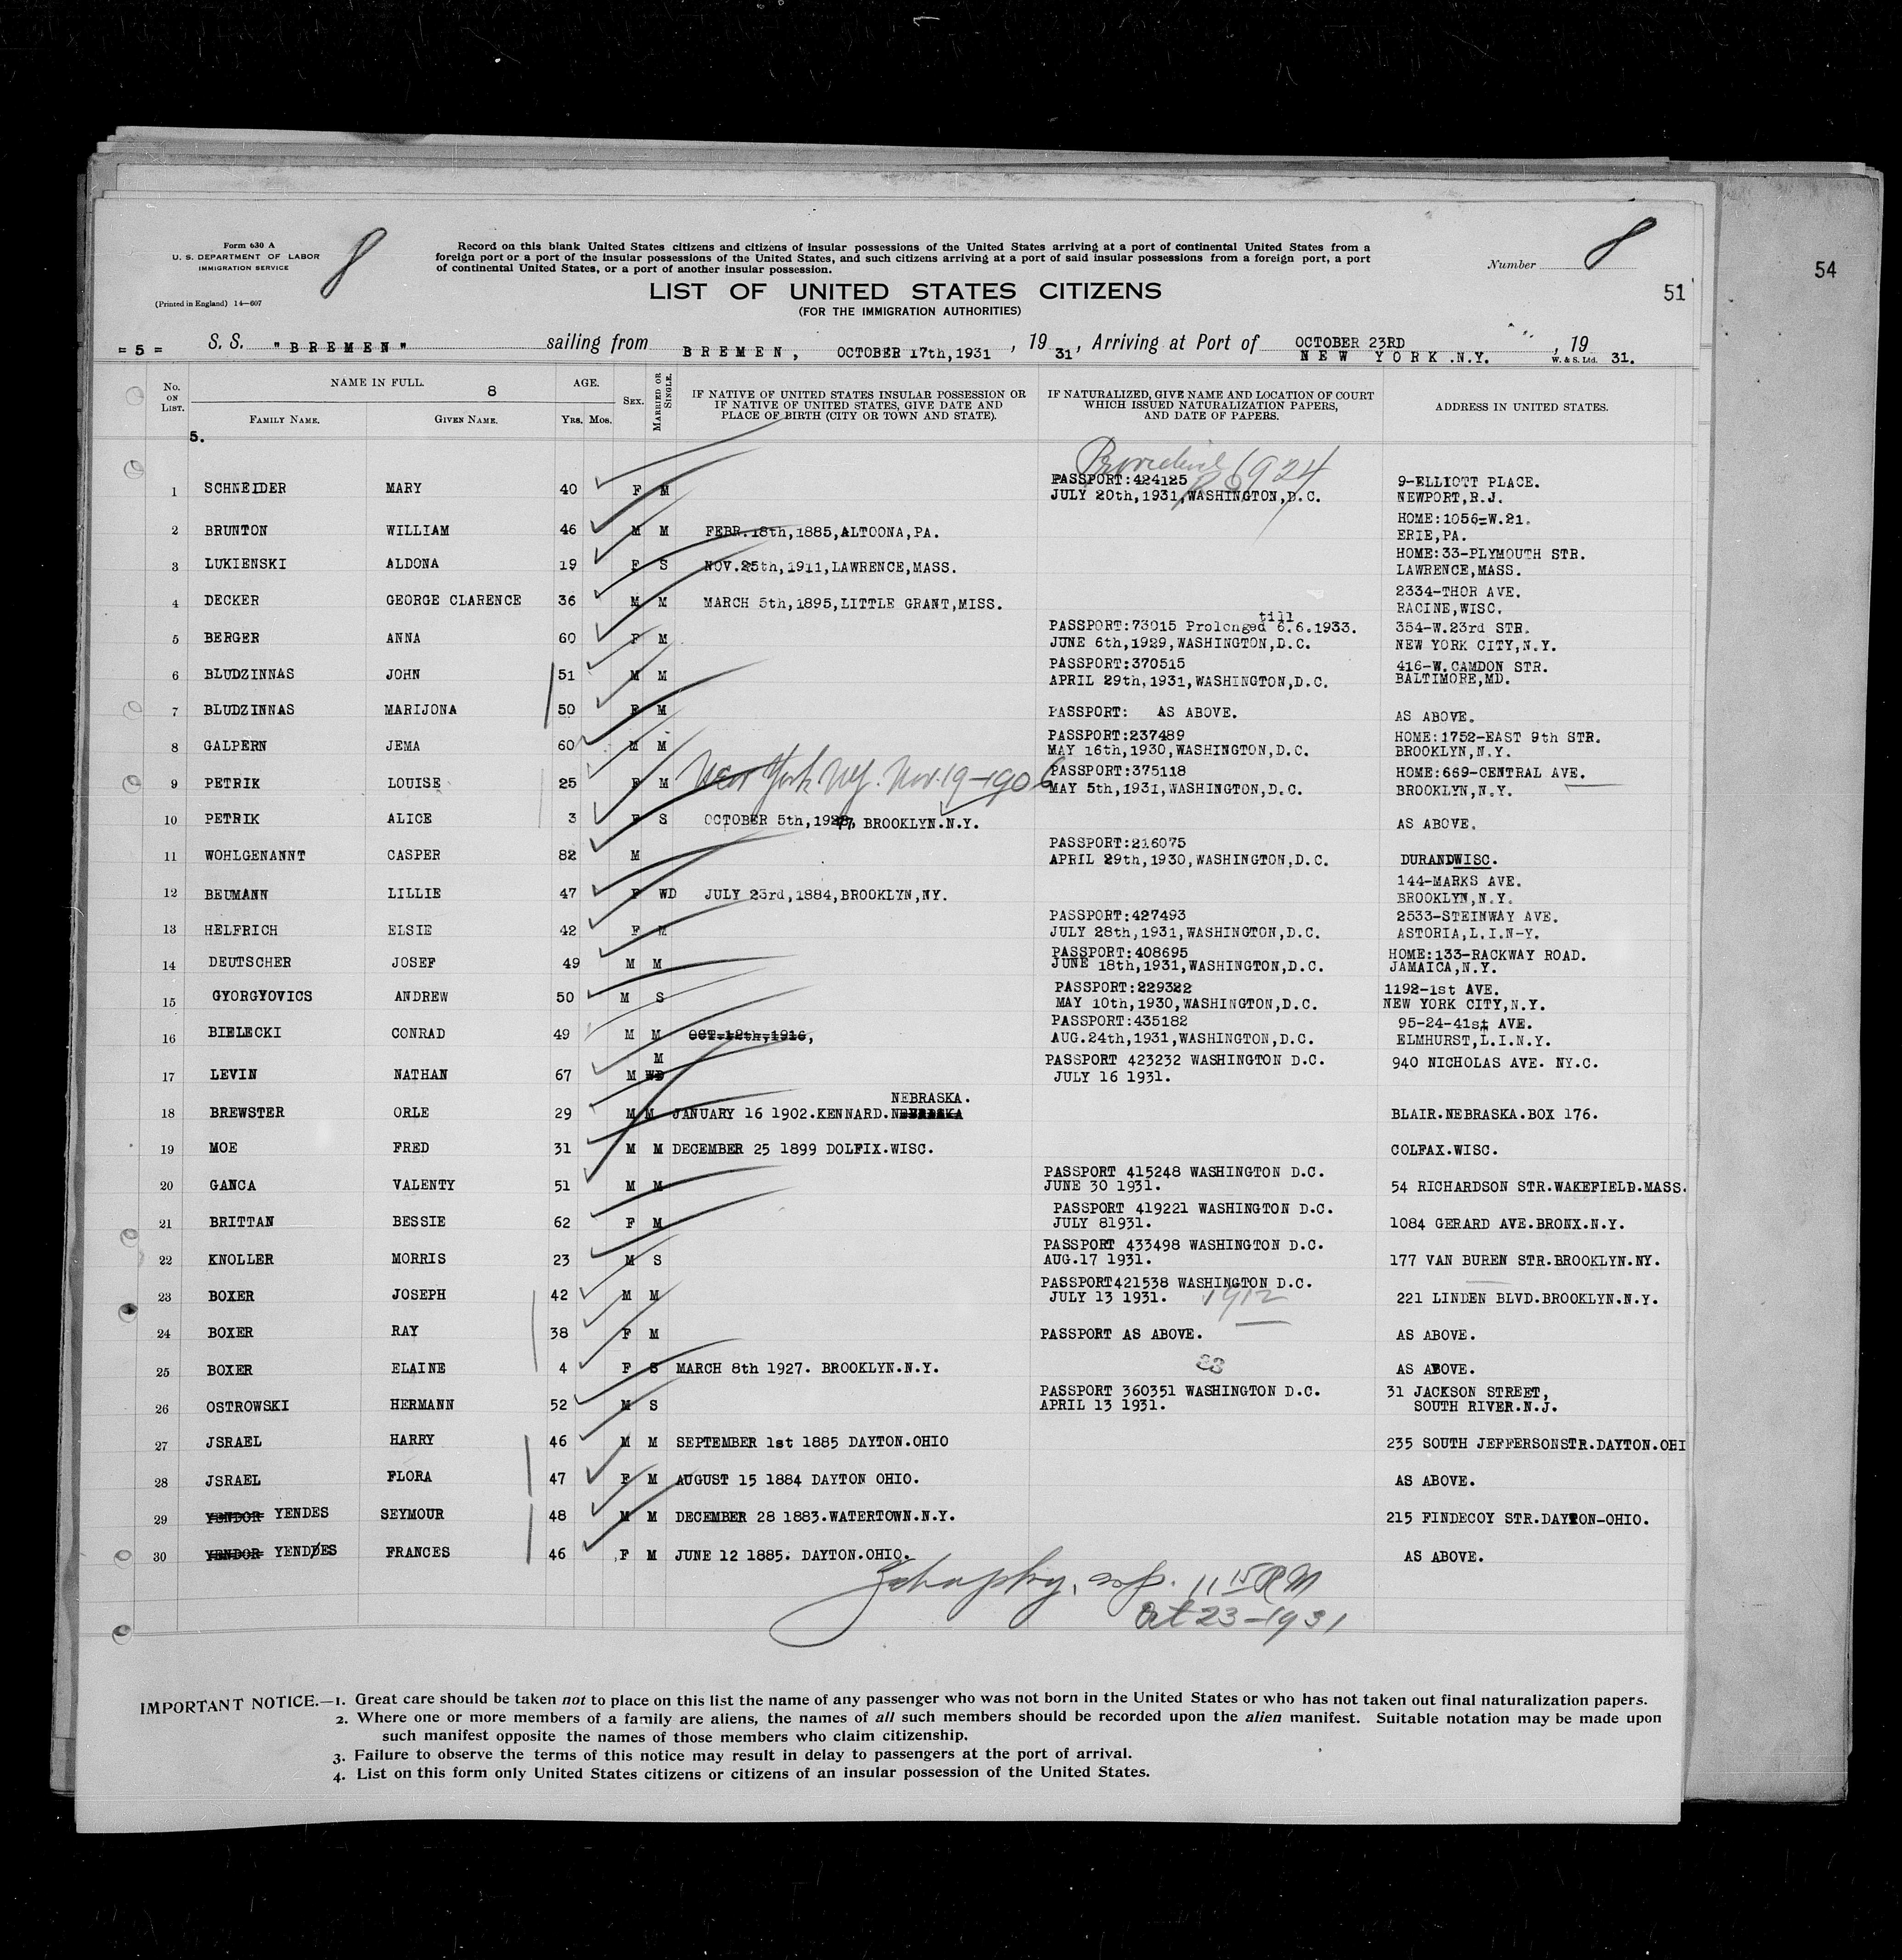 Form 630 A
U. S. DEPARTMENT OF LABOR
IMMIGRATION SERVICE
(Printed in England) 14—607
8
Record on this blank United States citizens and citizens of insular possessions of the United States arriving at a port of continental United States from a
foreign port or a port of the insular possessions of the United States, and such citizens arriving at a port of said insular possessions from a foreign port, a port
of continental United States, or a port of another insular possession.
Number 8
51
54
LIST OF UNITED STATES CITIZENS
(FOR THE IMMIGRATION AUTHORITIES)
= 5 = S. S. "BREMEN" sailing from BREMEN, OCTOBER 17th,1931, 1931, Arriving at Port of OCTOBER 23RD NEW YORK.N.Y., 1931.
W. & S. Ltd.
No. ON LIST. NAME IN FULL. 8 AGE. SEX. MARRIED OR SINGLE. IF NATIVE OF UNITED STATES INSULAR POSSESSION OR IF NATIVE OF UNITED STATES, GIVE DATE AND PLACE OF BIRTH (CITY OR TOWN AND STATE). IF NATURALIZED, GIVE NAME AND LOCATION OF COURT WHICH ISSUED NATURALIZATION PAPERS, AND DATE OF PAPERS. ADDRESS IN UNITED STATES.
FAMILY NAME. GIVEN NAME. YRS. MOS.
5.
1924
1 SCHNEIDER MARY 40 F M PASSPORT:424125 JULY 20th,1931,WASHINGTON,D.C. 9-ELLIOTT PLACE. NEWPORT,R.J.
2 BRUNTON WILLIAM 46 M M FEBR.18th,1885,ALTOONA,PA. HOME:1056=W.21. ERIE,PA.
3 LUKIENSKI ALDONA 19 F S NOV.25th,1911,LAWRENCE,MASS. HOME:33-PLYMOUTH STR. LAWRENCE,MASS.
4 DECKER GEORGE CLARENCE 36 M M MARCH 5th,1895,LITTLE GRANT,MISS. 2334-THOR AVE. RACINE,WISC.
5 BERGER ANNA 60 F M PASSPORT:73015 Prolonged till 6.6.1933. JUNE 6th,1929,WASHINGTON,D.C. 354-W.23rd STR. NEW YORK CITY,N.Y.
6 BLUDZINNAS JOHN 51 M M PASSPORT:370515 APRIL 29th,1931,WASHINGTON,D.C. 416-W.CAMDON STR. BALTIMORE,MD.
7 BLUDZINNAS MARIJONA 50 F M PASSPORT: AS ABOVE. AS ABOVE.
8 GALPERN JEMA 60 M M PASSPORT:237489 MAY 16th,1930,WASHINGTON,D.C. HOME:1752-EAST 9th STR. BROOKLYN,N.Y.
9 PETRIK LOUISE 25 F M New York NY. Nov. 19-1906 PASSPORT:375118 MAY 5th,1931,WASHINGTON,D.C. HOME:669-CENTRAL AVE. BROOKLYN,N.Y.
10 PETRIK ALICE 3 F S OCTOBER 5th, BROOKLYN.N.Y. AS ABOVE.
11 WOHLGENANNT CASPER 82 M PASSPORT:216075 APRIL 29th,1930,WASHINGTON,D.C. DURANDWISC.
12 BEUMANN LILLIE 47 F WD JULY 23rd,1884,BROOKLYN,NY. 144-MARKS AVE. BROOKLYN,N.Y.
13 HELFRICH ELSIE 42 F M PASSPORT:427493 JULY 28th,1931,WASHINGTON,D.C. 2533-STEINWAY AVE. ASTORIA,L.I.N-Y.
14 DEUTSCHER JOSEF 49 M M PASSPORT:408695 JUNE 18th,1931,WASHINGTON,D.C. HOME:133-RACKWAY ROAD. JAMAICA,N.Y.
15 GYORGYOVICS ANDREW 50 M S PASSPORT:229322 MAY 10th,1930,WASHINGTON,D.C. 1192-1st AVE. NEW YORK CITY,N.Y.
16 BIELECKI CONRAD 49 M M OCT.12th,1916, PASSPORT:435182 AUG.24th,1931,WASHINGTON,D.C. 95-24-41st AVE. ELMHURST,L.I.N.Y.
17 LEVIN NATHAN 67 M WD M PASSPORT 423232 WASHINGTON D.C. JULY 16 1931. 940 NICHOLAS AVE. NY.C.
18 BREWSTER ORLE 29 M M JANUARY 16 1902.KENNARD.NEBRASKA NEBRASKA. BLAIR.NEBRASKA.BOX 176.
19 MOE FRED 31 M M DECEMBER 25 1899 DOLFIX.WISC. COLFAX.WISC.
20 GANCA VALENTY 51 M M PASSPORT 415248 WASHINGTON D.C. JUNE 30 1931. 54 RICHARDSON STR.WAKEFIELD.MASS.
21 BRITTAN BESSIE 62 F M PASSPORT 419221 WASHINGTON D.C. JULY 81931. 1084 GERARD AVE.BRONX.N.Y.
22 KNOLLER MORRIS 23 M S PASSPORT 433498 WASHINGTON D.C. AUG.17 1931. 177 VAN BUREN STR.BROOKLYN.NY.
23 BOXER JOSEPH 42 M M PASSPORT421538 WASHINGTON D.C. JULY 13 1931. 1912 221 LINDEN BLVD.BROOKLYN.N.Y.
24 BOXER RAY 38 F M PASSPORT AS ABOVE. AS ABOVE.
25 BOXER ELAINE 4 F S MARCH 8th 1927. BROOKLYN.N.Y. AS ABOVE.
26 OSTROWSKI HERMANN 52 M S PASSPORT 360351 WASHINGTON D.C. APRIL 13 1931. 31 JACKSON STREET, SOUTH RIVER.N.J.
27 JSRAEL HARRY 46 M M SEPTEMBER 1st 1885 DAYTON.OHIO 235 SOUTH JEFFERSONSTR.DAYTON.OHI
28 JSRAEL FLORA 47 F M AUGUST 15 1884 DAYTON OHIO. AS ABOVE.
29 YENDOR YENDES SEYMOUR 48 M M DECEMBER 28 1883.WATERTOWN.N.Y. 215 FINDECOY STR.DAYTON-OHIO.
30 YENDOR YENDES FRANCES 46 F M JUNE 12 1885. DAYTON.OHIO. AS ABOVE.
11 15 AM
Oct 23-1931
IMPORTANT NOTICE.—1. Great care should be taken not to place on this list the name of any passenger who was not born in the United States or who has not taken out final naturalization papers.
2. Where one or more members of a family are aliens, the names of all such members should be recorded upon the alien manifest. Suitable notation may be made upon
such manifest opposite the names of those members who claim citizenship.
3. Failure to observe the terms of this notice may result in delay to passengers at the port of arrival.
4. List on this form only United States citizens or citizens of an insular possession of the United States.